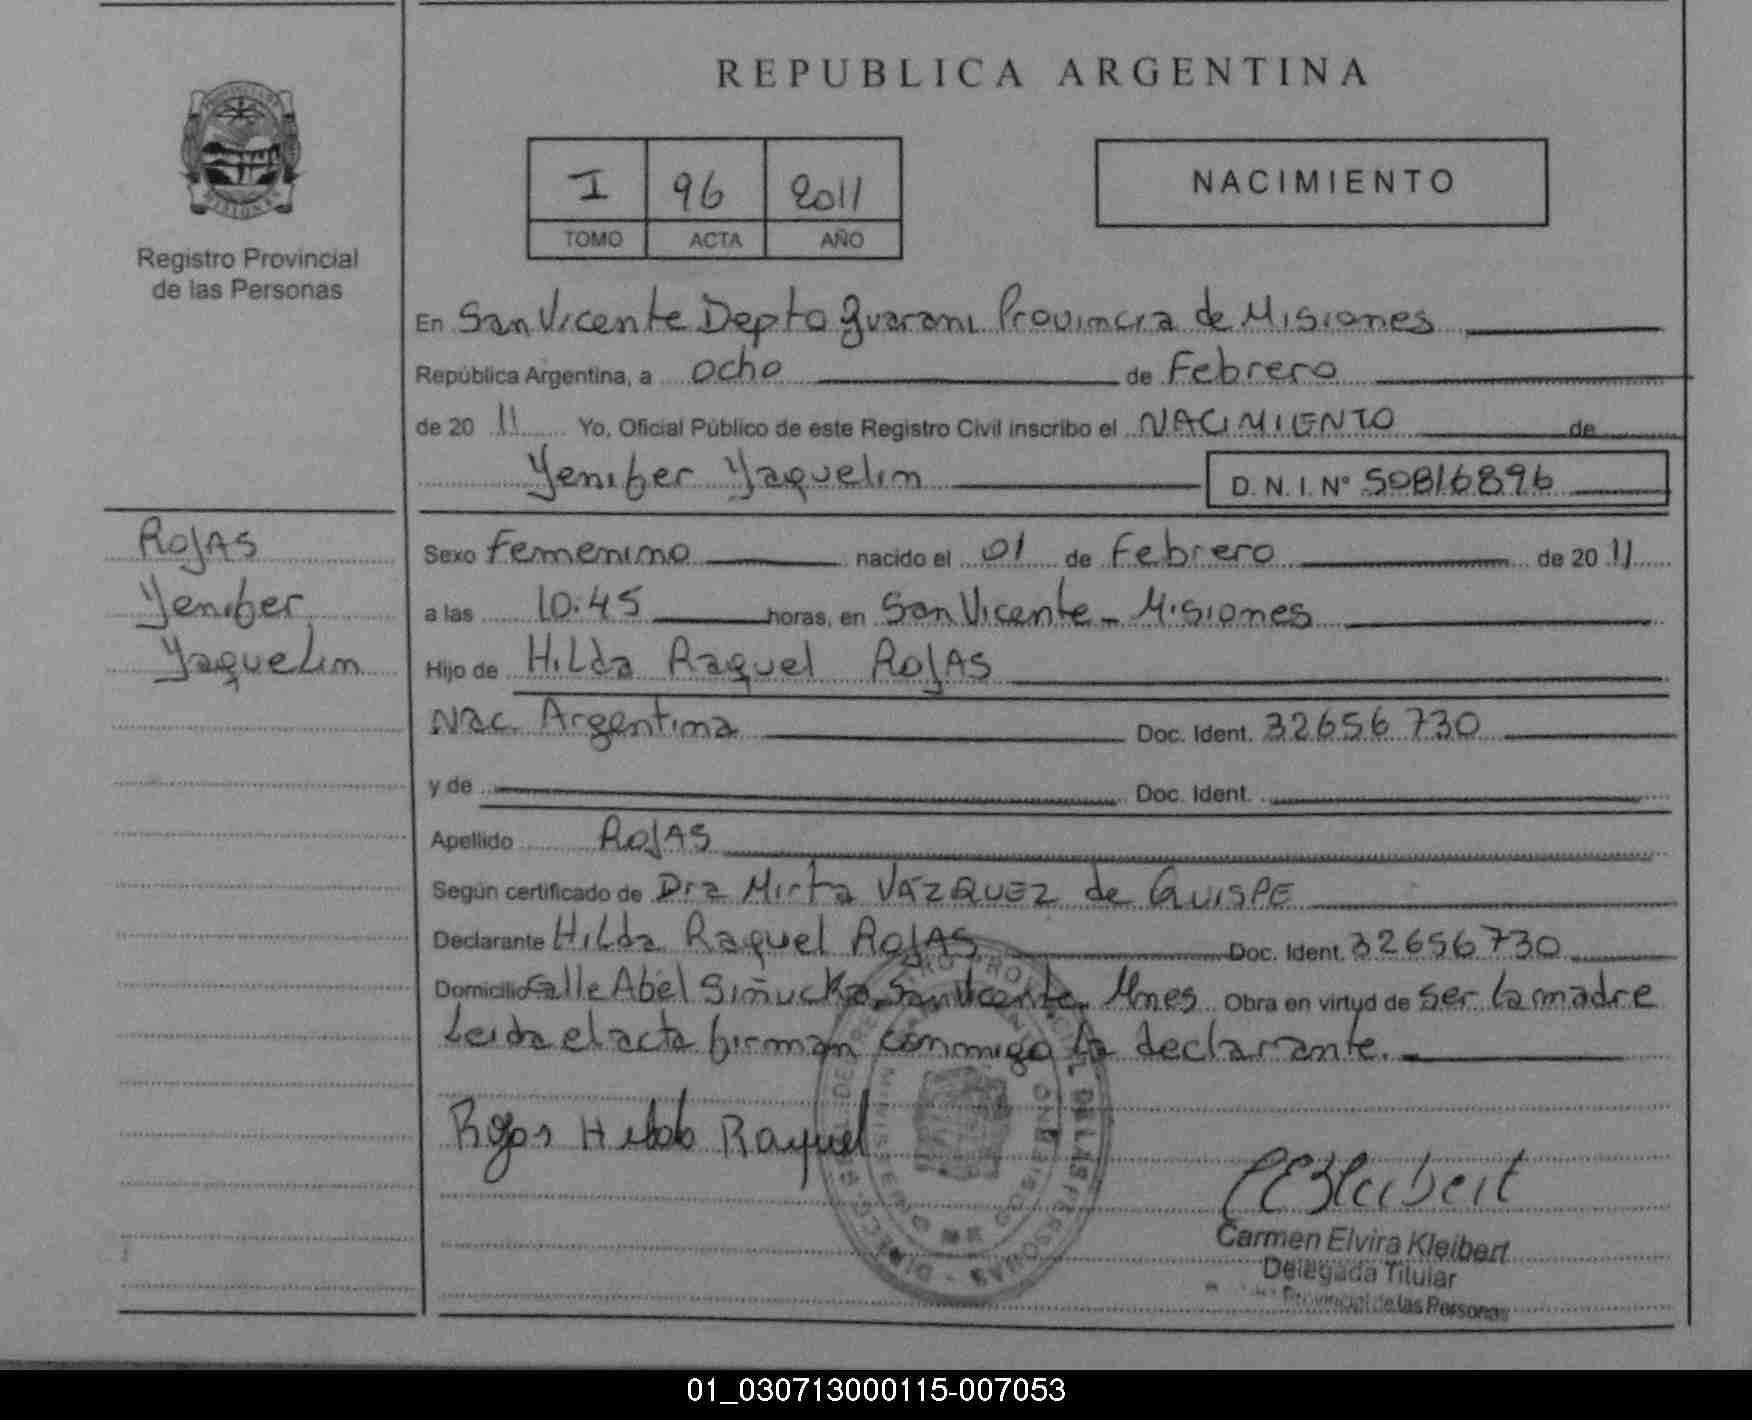 REPUBLICA ARGENTINA
I 96 2011
TOMO ACTA AÑO
NACIMIENTO
Registro Provincial
de las Personas
En San Vicente Depto Guarani Provincia de Misiones
República Argentina, a ocho de Febrero
de 20 11 Yo, Oficial Público de este Registro Civil inscribo el NACIMIENTO de
Yenifer Yaquelin D. N. I. Nº 50816896
ROJAS
Yenifer
Yaquelin
Sexo Femenino nacido el 01 de Febrero de 20 11
a las 10.45 horas, en San Vicente - Misiones
Hijo de Hilda Raquel ROJAS
Nac. Argentina Doc. Ident. 32656730
y de Doc. Ident.
Apellido ROJAS
Según certificado de Dra Mirta VAZQUEZ de QUISPE
Declarante Hilda Raquel ROJAS Doc. Ident. 32656730
Domicilio Calle Abel Siñucka, San Vicente, Mnes Obra en virtud de ser la madre
Leida el acta firman conmigo la declarante.
Rojas Hilda Raquel
Carmen Elvira Kleibert
Delegada Titular
Provincial de las Personas
01_030713000115-007053